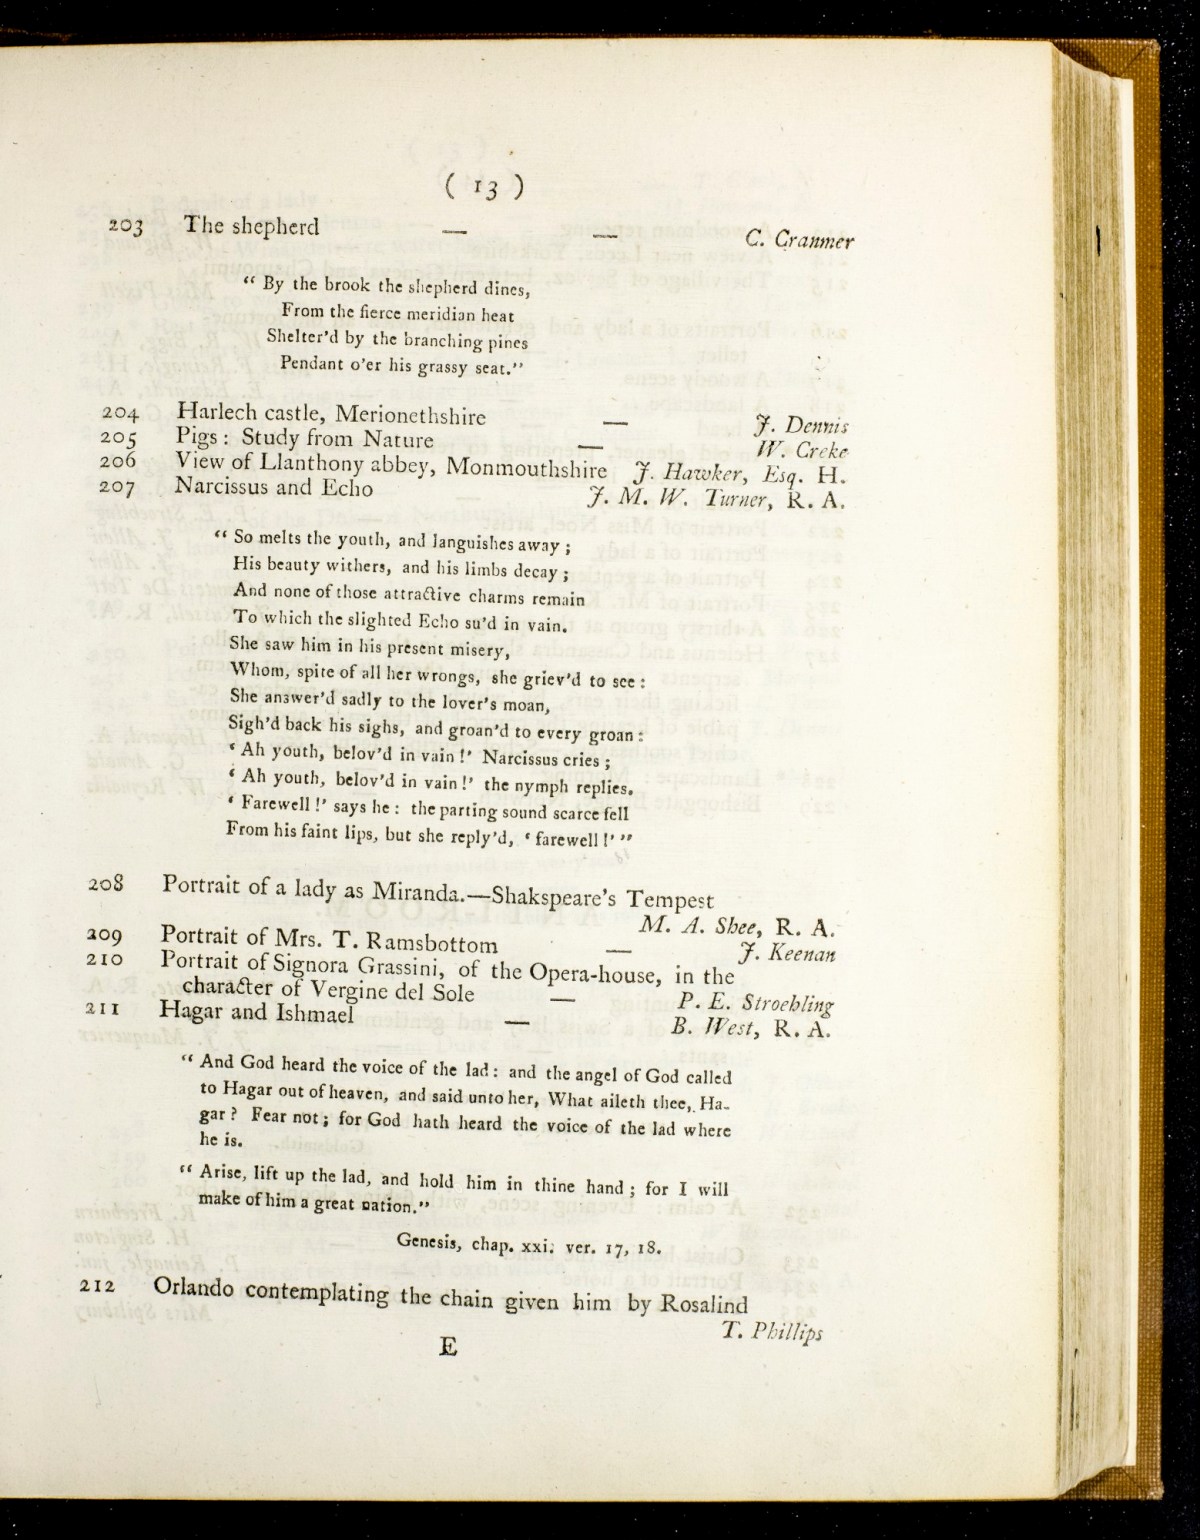 ( 13 )
203 The shepherd — — C. Cranmer
“ By the brook the shepherd dines,
From the fierce meridian heat
Shelter’d by the branching pines
Pendant o’er his grassy seat.”
204 Harlech castle, Merionethshire — J. Dennis
205 Pigs : Study from Nature — W. Creke
206 View of Llanthony abbey, Monmouthshire J. Hawker, Esq. H.
207 Narcissus and Echo J. M. W. Turner, R. A.
“ So melts the youth, and languishes away ;
His beauty withers, and his limbs decay ;
And none of those attractive charms remain
To which the slighted Echo su’d in vain.
She saw him in his present misery,
Whom, spite of all her wrongs, she griev’d to see :
She answer’d sadly to the lover’s moan,
Sigh’d back his sighs, and groan’d to every groan :
‘ Ah youth, belov’d in vain !’ Narcissus cries ;
‘ Ah youth, belov’d in vain !’ the nymph replies.
‘ Farewell !’ says he : the parting sound scarce fell
From his faint lips, but she reply’d, ‘ farewell !’ ”
208 Portrait of a lady as Miranda.—Shakspeare’s Tempest
M. A. Shee, R. A.
209 Portrait of Mrs. T. Ramsbottom — J. Keenan
210 Portrait of Signora Grassini, of the Opera-house, in the
character of Vergine del Sole — P. E. Stroehling
211 Hagar and Ishmael — B. West, R. A.
“ And God heard the voice of the lad : and the angel of God called
to Hagar out of heaven, and said unto her, What aileth thee, Ha-
gar ? Fear not ; for God hath heard the voice of the lad where
he is.
“ Arise, lift up the lad, and hold him in thine hand ; for I will
make of him a great nation.”
Genesis, chap. xxi. ver. 17, 18.
212 Orlando contemplating the chain given him by Rosalind
T. Phillips
E